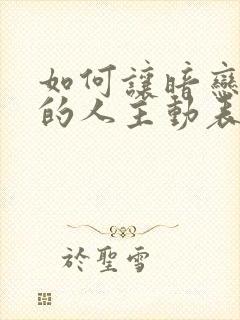 如何讓暗戀
的人主動表
於聖雪